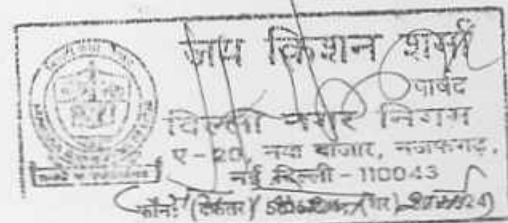 जय किशन शर्मा
पार्षद
दिल्ली नगर निगम
ए-20, नया बाजार, नजफगढ़,
नई दिल्ली-110043
फोन: (दफ्तर) (घर)